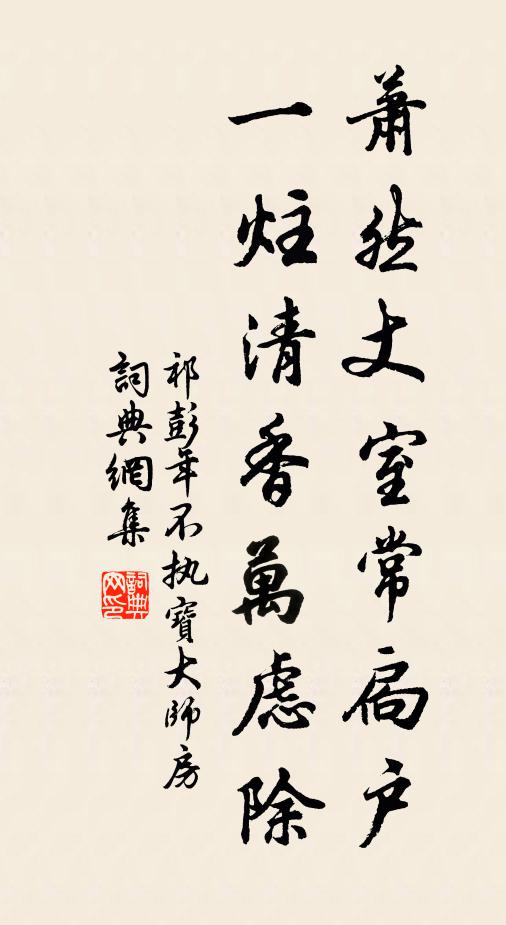 蕭然丈室常扃户
一炷清香萬慮除
祁彭年不执寶大師房
詞典網集
詞典
网印